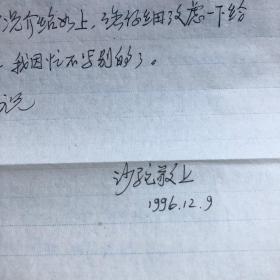 况介绍如上，请仔细考虑一下给
我因忙不写别的了。
说
沙驼敬上
1996.12.9